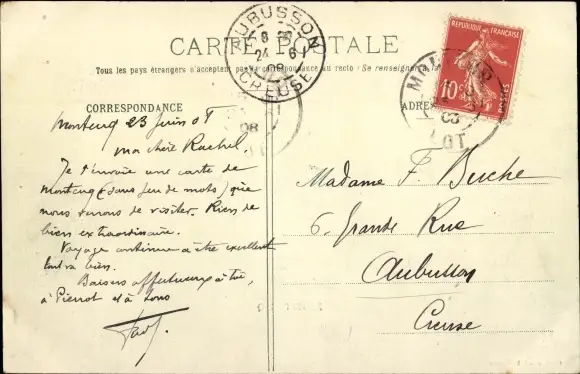 CARTE POSTALE
Tous les pays étrangers n'acceptent pas la correspondance au recto : Se renseigner
CORRESPONDANCE
ADRES
AUBUSSON
8
24 - 6
08
CREUSE
08
LOT
08
REPUBLIQUE FRANÇAISE
10c
POSTES
Montcuq 23 Juin 08
Ma chère Rachel,
Je t'envoie une carte de
Montcuq (sans jeu de mots) que
nous venons de visiter. Rien de
bien extraordinaire.
Voyage continue à être excellent
tout va bien.
Baisers affectueux à toi,
à Pierrot et à tous
Madame F. Buche
6. Grande Rue
Aubusson
Creuse